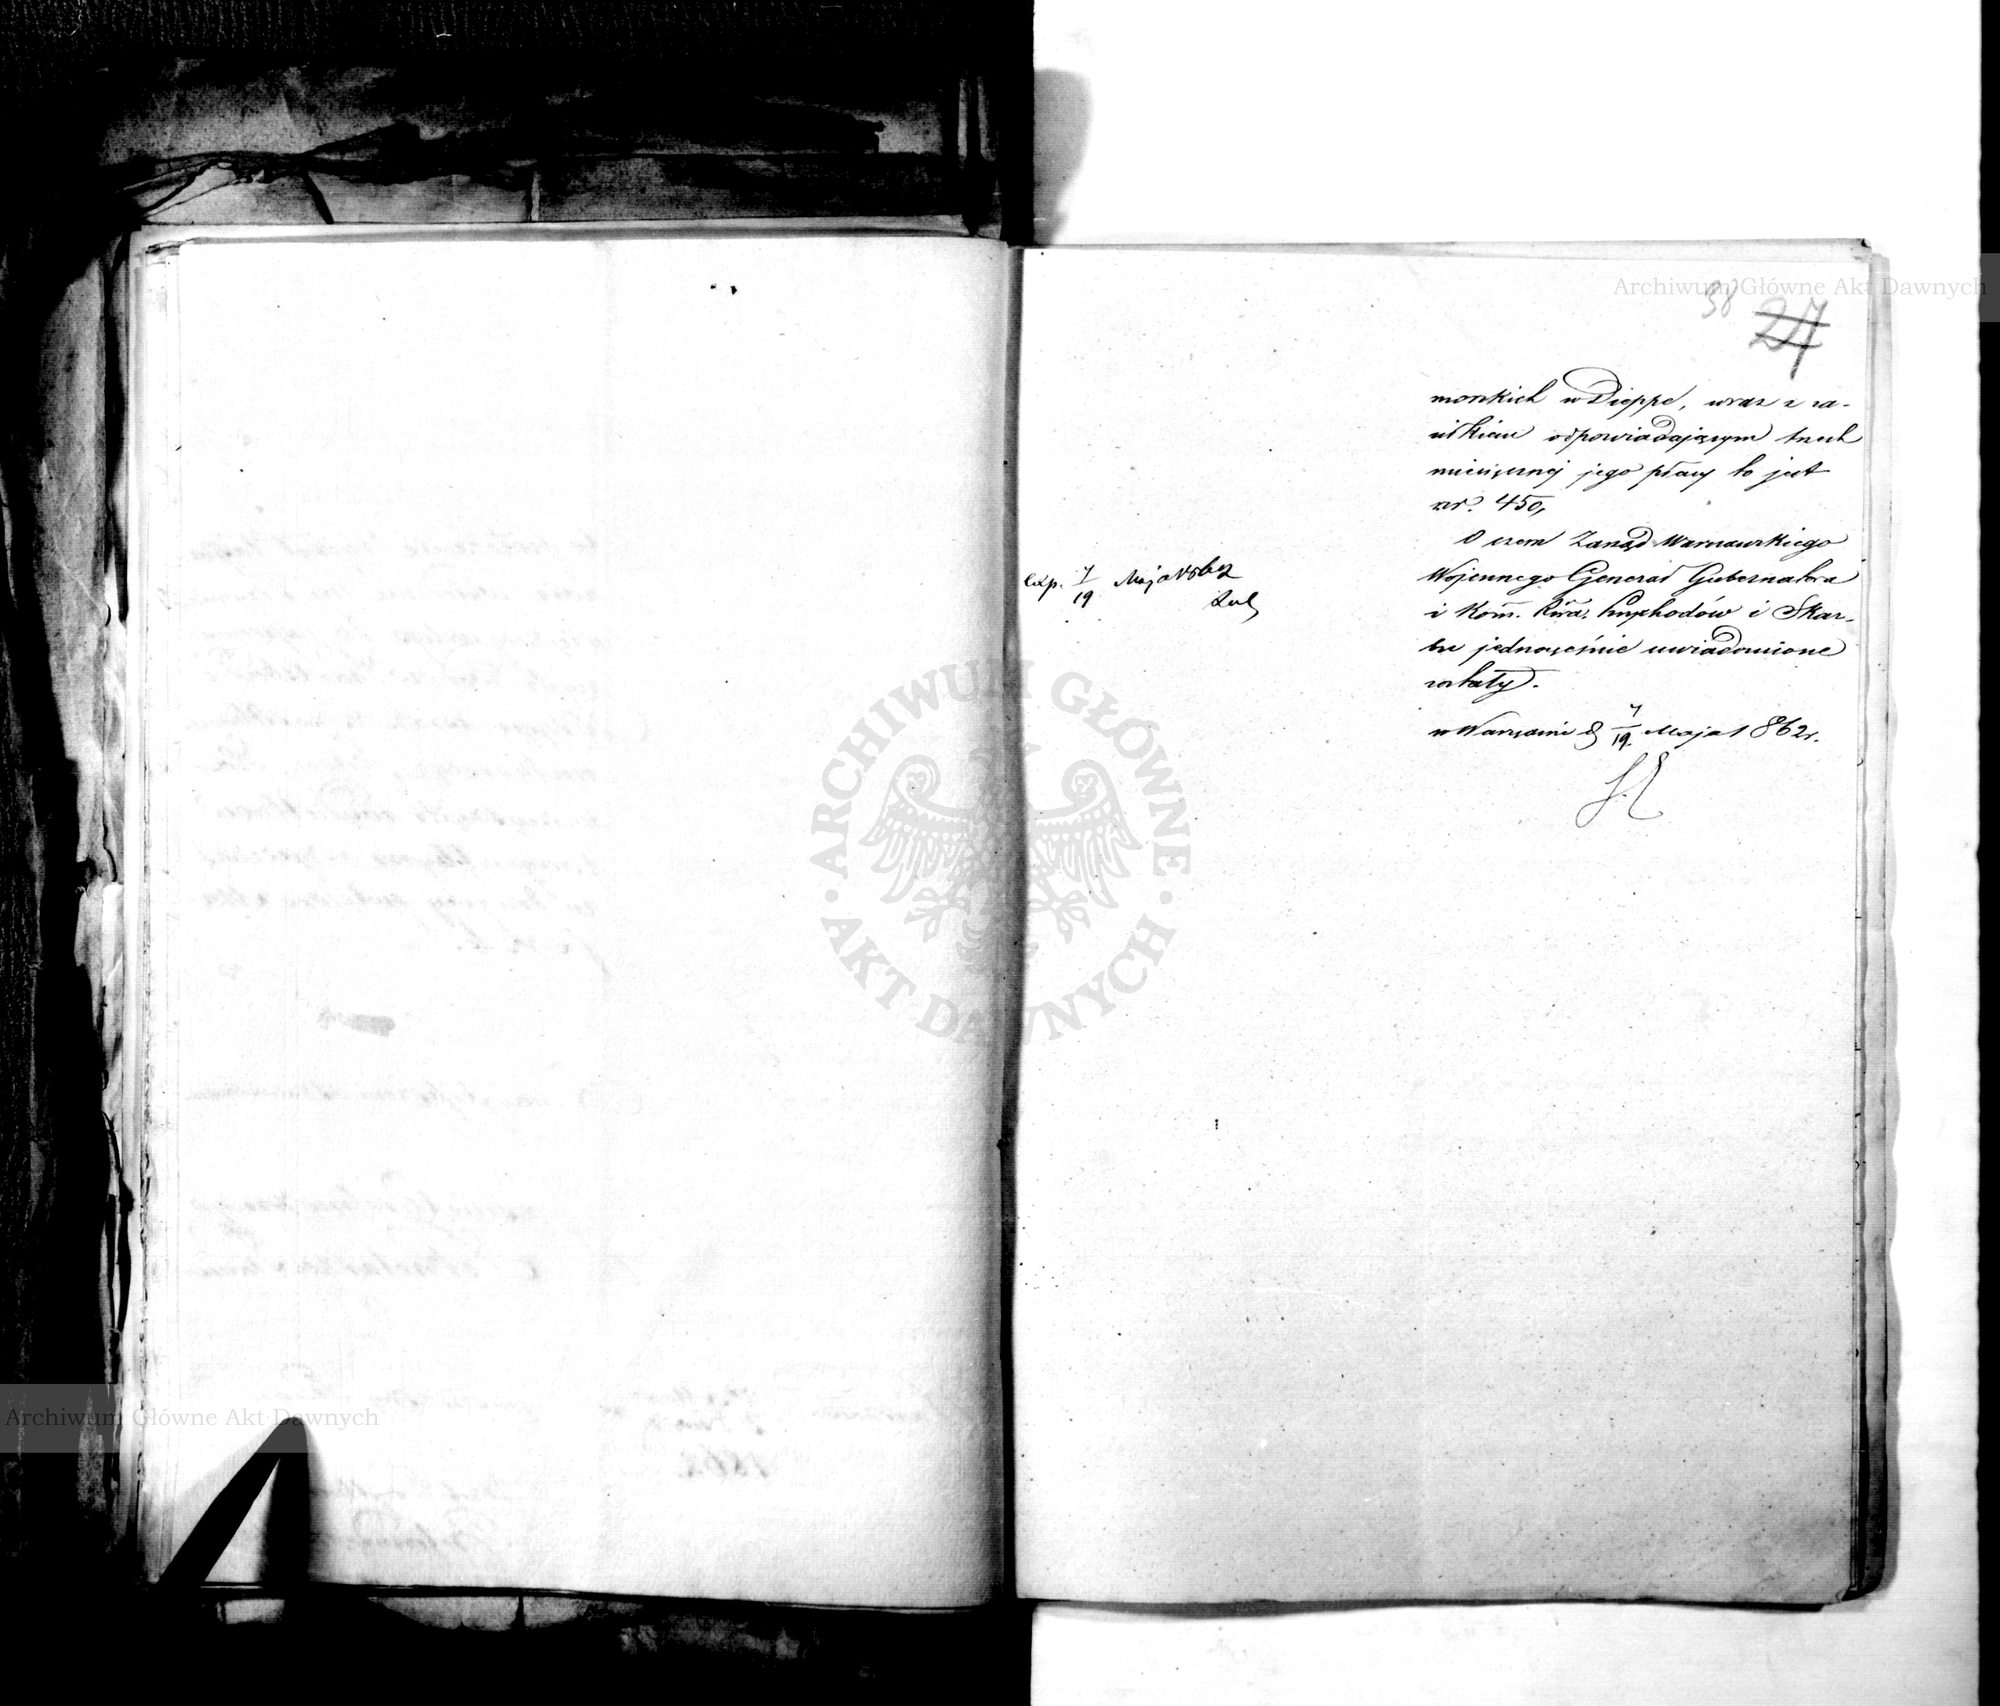 Archiwum Główne Akt Dawnych
38 27
morskich w Dieppe, wraz z za-
siłkiem odpowiadającym trzech
miesięcznej jego płacy to jest
rsr. 450,
O czem Zarząd Warszawskiego
Wojennego Generał Gubernatora
i Kom. Rząd. Przychodów i Skar-
bu jednocześnie uwiadomione
zostały.
w Warszawie d 7/19 Maja 1862 r.
Exp. 7/19 Maja 1862
ARCHIWUM GŁÓWNE · AKT DAWNYCH ·
Archiwum Główne Akt Dawnych